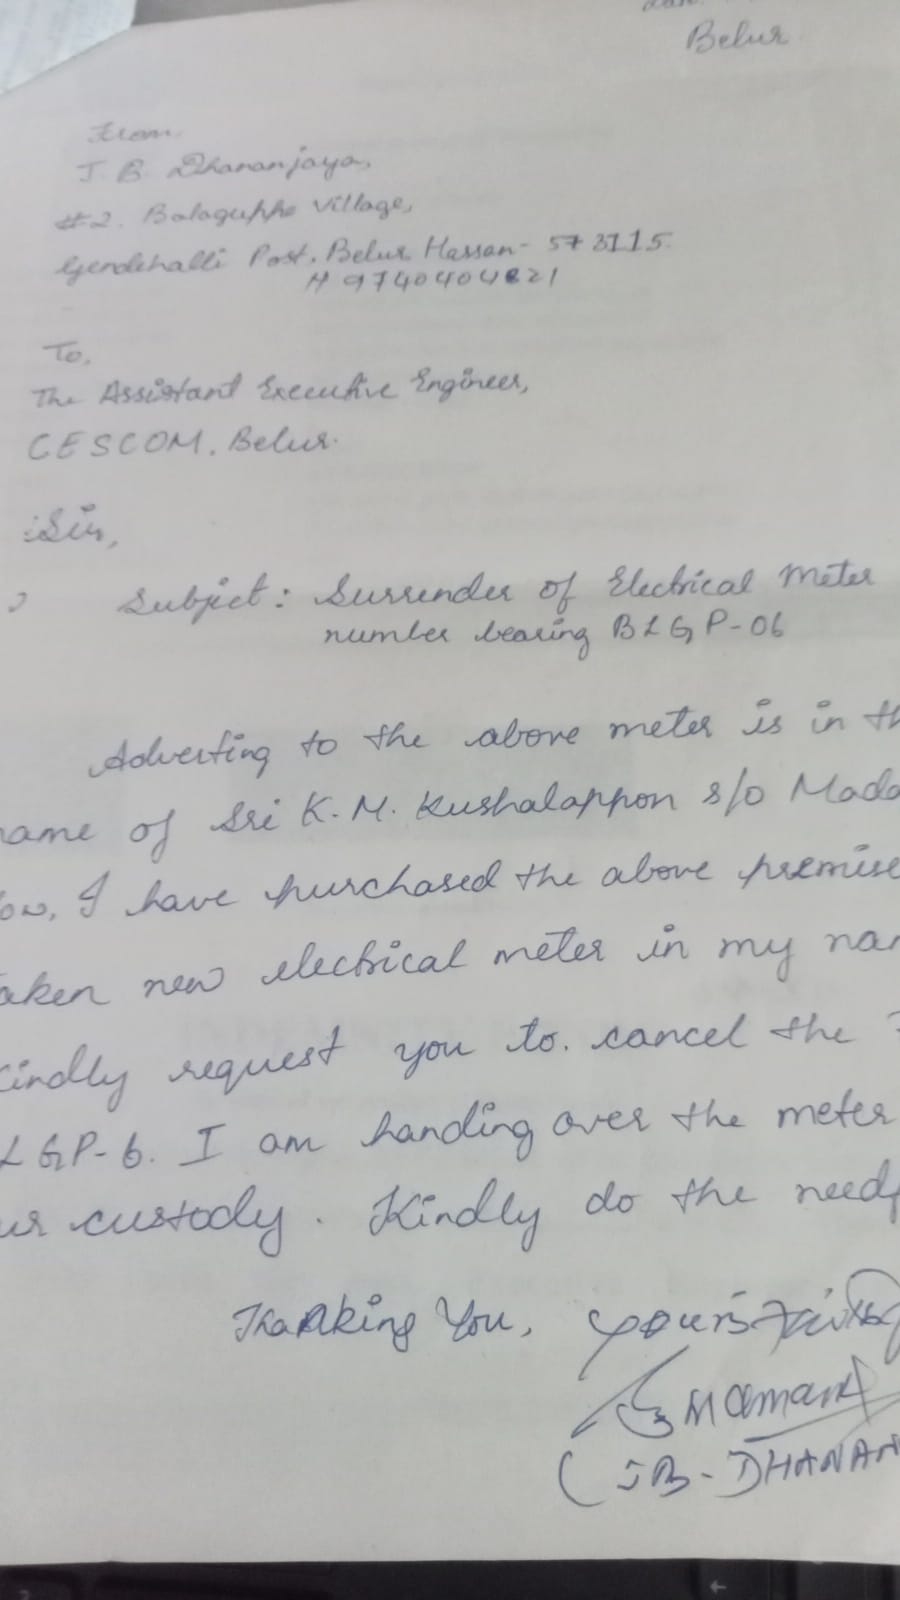 Belur
From
J. B. Dhananjaya,
#2. Balaguppe Village,
Gendehalli Post. Belur Hassan- 573115.
To,
The Assistant Executive Engineer,
CESCOM. Belur.
Sir,
Subject: Surrender of Electrical Meter
number bearing BLGP-06
Adverting to the above meter is in th
name of Sri K. M. Kushalappon s/o Mada
ow, I have purchased the above premise
aken new electrical meter in my nam
kindly request you to. cancel the
LGP-6. I am handing over the meter
ur custody. Kindly do the needf
Thanking You, yours
(JB- DHANAN